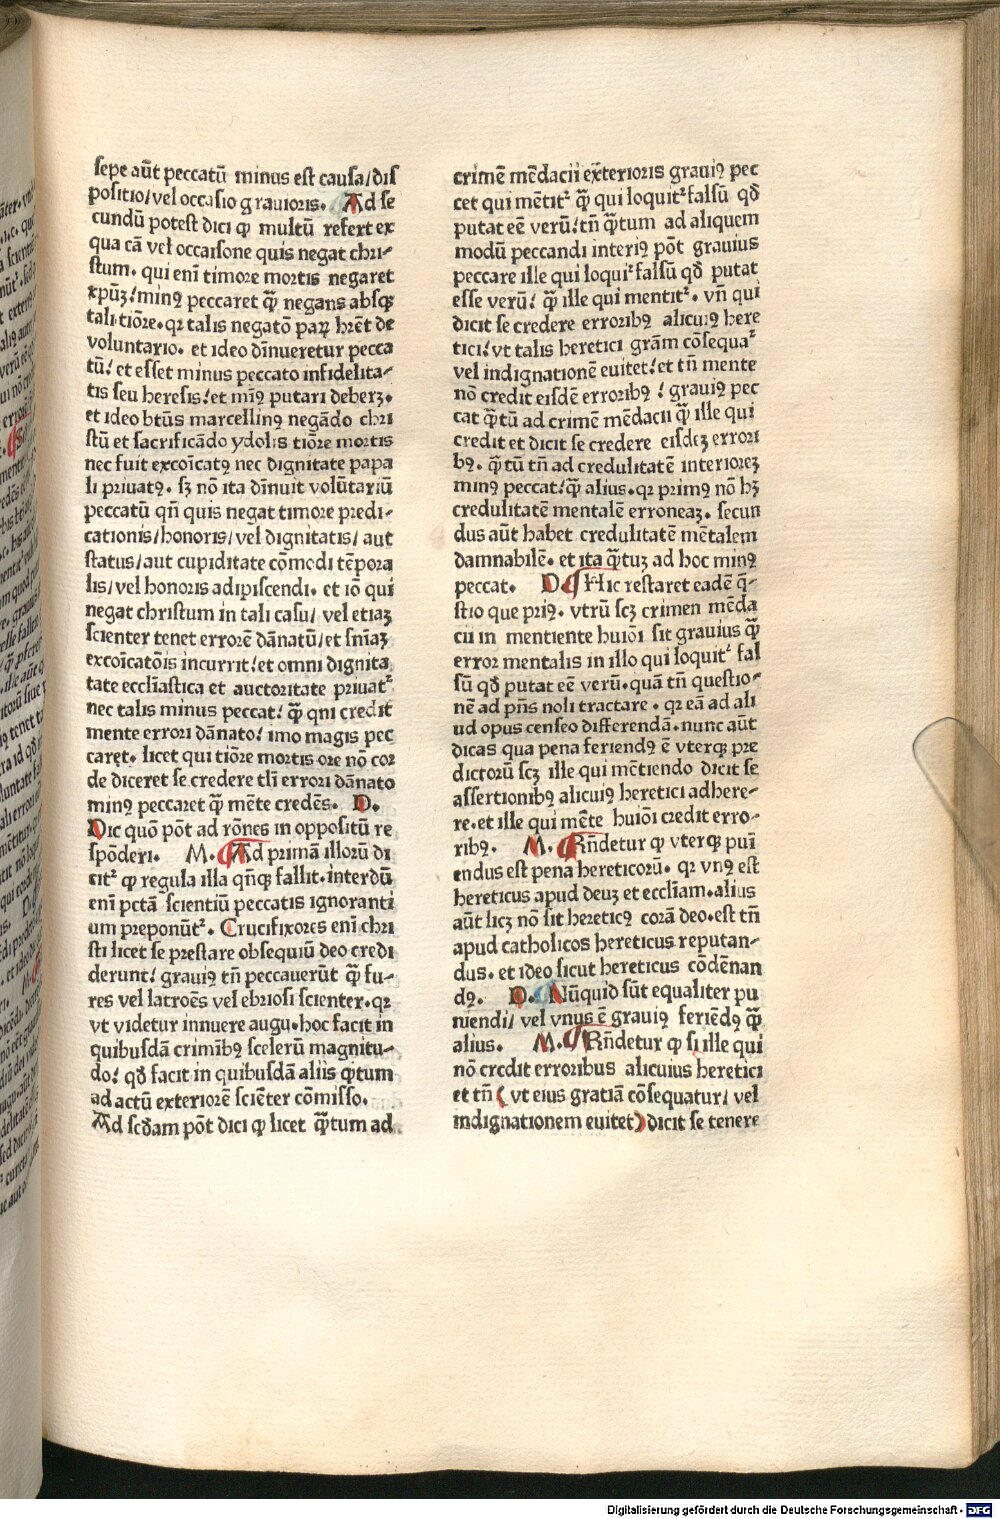 sepe aūt peccatū minus est causa/dis
positio/vel occasio grauioris. Ad se
cundū potest dici ꝙ multū refert ex
qua cā vel occasione quis negat chri-
stum. qui eni timore mortis negaret
xpūꝫ/minꝰ peccaret q̄ꝫ negans absqꝫ
tali tiōre. qꝛ talis negatō paꝝ hr̄et de
voluntario. et ideo dīnueretur pecca
tū/ et esset minus peccato infidelita-
tis seu heresis/et mīꝰ putari deberꝫ.
et ideo btūs marcellinꝰ negādo chri
stū et sacrificādo ydolis tiōre mortis
nec fuit excoīcatꝰ nec dignitate papa
li priuatꝰ. sꝫ nō ita dīnuit volūtariū
peccatū qn̄ quis negat timore predi-
cationis/honoris/vel dignitatis/ aut
status/aut cupiditate cōmodi tēpora
lis/vel honoris adipiscendi. et iō qui
negat christum in tali casu/ vel etiaꝫ
scienter tenet errorē dānatū/et sn̄iaꝫ
excoīcatōis incurrit/et omni dignita
tate ecclīastica et auctoritate priuatᷣ
nec talis minus peccat/ q̄ꝫ qni credit
mente errori dānato/ imo magis pec
caret. licet qui tiōre mortis ore nō cor
de diceret se credere tli errori dānato
minꝰ peccaret q̄ꝫ mēte credēs. D.
Dic quō pōt ad rōnes in oppositū re
spōderi. M. Ad primā illorū di
citᷣ ꝙ regula illa qn̄qꝫ fallit. interdū
eni pctā scientiū peccatis ignoranti
um preponūtᷣ. Crucifixores eni chri
sti licet se prestare obsequiū deo credi
derunt/ grauiꝰ tn̄ peccauerūt q̄ꝫ fu-
res vel latroēs vel ebriosi scienter. qꝛ
vt videtur innuere augu. hoc facit in
quibusdā crimībꝰ scelerū magnitu-
do/ qd̄ facit in quibusdā aliis q̄tum
ad actū exteriorē sciēter cōmisso.
Ad scd̄am pōt dici ꝙ licet q̄ꝫtum ad
crimē mēdacii exterioris grauiꝰ pec
cet qui mētitᷣ q̄ꝫ qui loquitᷣ falsū qd̄
putat eē verū/tn̄ q̄ꝫtum ad aliquem
modū peccandi interiꝰ pōt grauius
peccare ille qui loquiᷣ falsū qd̄ putat
esse verū/ q̄ꝫ ille qui mentitᷣ. vn̄ qui
dicit se credere erroribꝰ alicuiꝰ here
tici/vt talis heretici grām cōsequaᷣ
vel indignationē euitet/et tn̄ mente
nō credit eisdē erroribꝰ / grauiꝰ pec
cat q̄ꝫtū ad crimē mēdacii q̄ꝫ ille qui
credit et dicit se credere eisdeꝫ errori
bꝰ. q̄ꝫtū tn̄ ad credulitatē interioreꝫ
minꝰ peccat/q̄ꝫ alius. qꝛ primꝰ nō hꝫ
credulitatē mentalē erroneaꝫ. secun
dus aūt habet credulitatē mētalem
damnabilē. et ita q̄ꝫtuꝫ ad hoc minꝰ
peccat. D. Hic restaret eadē q̄-
stio que priꝰ. vtrū scꝫ crimen mēda
cii in mentiente huiōi sit grauius q̄ꝫ
error mentalis in illo qui loquitᷣ fal
sū qd̄ putat eē verū. quā tn̄ questio-
nē ad pn̄s noli tractare. qꝛ eā ad ali
ud opus censeo differendā. nunc aūt
dicas qua pena feriendꝰ ē vterqꝫ pre
dictorū scꝫ ille qui mētiendo dicit se
assertionibꝰ alicuiꝰ heretici adhere-
re. et ille qui mēte huiōi credit erro-
ribꝰ. M. Rn̄detur ꝙ vterqꝫ puī
endus est pena hereticorū. qꝛ vnꝰ est
hereticus apud deuꝫ et eccliam. alius
aūt licꝫ nō sit hereticꝰ corā deo. est tn̄
apud catholicos hereticus reputan-
dus. et ideo sicut hereticus cōdēnan
dꝰ. D. Nūquid sūt equaliter pu
niendi/ vel vnus ē grauiꝰ feriēdꝰ q̄ꝫ
alius. M. Rn̄detur ꝙ si ille qui
nō credit erroribus alicuius heretici
et tn̄ (vt eius gratiā cōsequatur/ vel
indignationem euitet) dicit se tenere
Digitalisierung gefördert durch die Deutsche Forschungsgemeinschaft - DFG